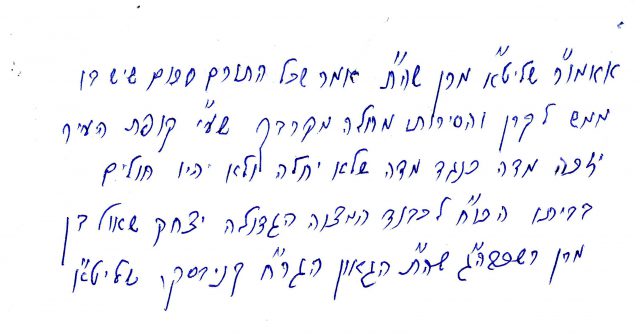 אאמו"ר שליט"א מרן שה"ת אמר שכל התורם סכום שיש בו
ממש לקרן והסירותי מחלה מקרבך שע"י קופת העיר
יזכה מדה כנגד מדה שלא יחלה ולא יהיו חולים
בביתו הכו"ח לכבוד המצוה הגדולה יצחק שאול בן
מרן רשכבה"ג שה"ת הגאון הגר"ח קניבסקי שליט"א